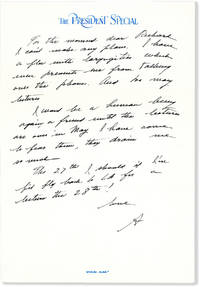 THE PRESIDENT SPECIAL
To the moment dear Richard
I can't make any plans, I have
a flu with laryngitis which
even prevents me from talking
over the phone. And so many
lectures
I want be a human being
again, a friend until the lectures
are over in May I have come
to fear them, they drain me
so much
The 27th I should if I'm
fly back to LA for a
lecture the 28th!
love
A